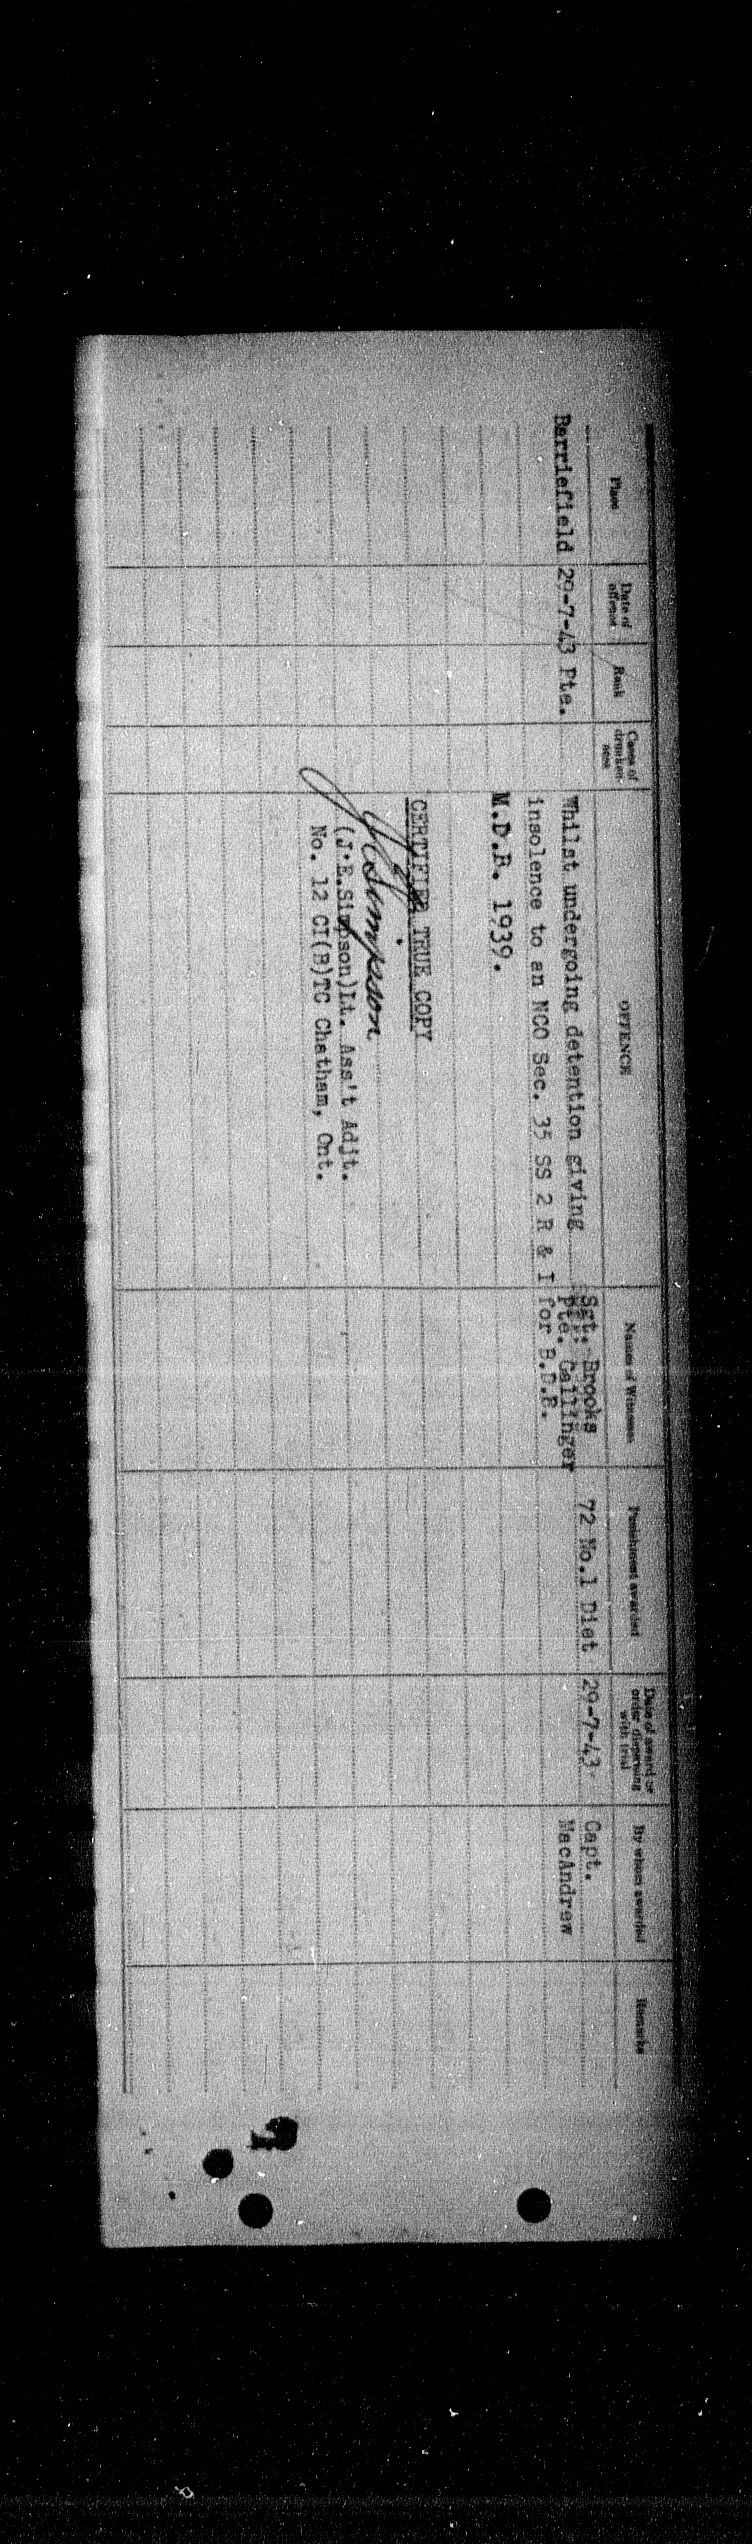 Place Date of offence Rank Cases of drunken-ness OFFENCE Names of Witnesses Punishment awarded Date of award or order dispensing with trial By whom awarded Remarks
Barriefield 29-7-43 Pte. Whilst undergoing detention giving Sgt. Brooks 72 No.1 Diet 29-7-43 Capt.
Pte. Gallinger MacAndrew
insolence to an NCO Sec. 35 SS 2 R & I for B.D.B.
M.D.B. 1939.
CERTIFIED TRUE COPY
JESimpson
(J.E.Simpson)Lt. Ass't Adjt.
No. 12 CI(B)TC Chatham, Ont.